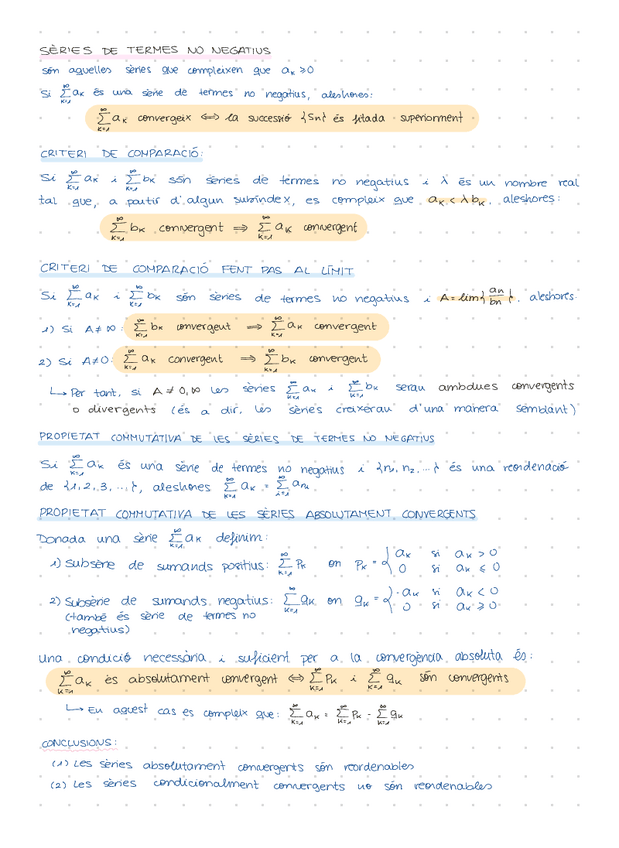 SÈRIES DE TERMES NO NEGATIUS
són aquelles sèries que compleixen que aₖ ≥ 0
Si ∑_{k=1}^∞ aₖ és una sèrie de termes no negatius, aleshores:
∑_{k=1}^∞ aₖ convergeix ⟺ la successió {Sn} és fitada superiorment
CRITERI DE COMPARACIÓ:
Si ∑_{k=1}^∞ aₖ i ∑_{k=1}^∞ bₖ són sèries de termes no negatius i λ és un nombre real
tal que, a partir d'algun subíndex, es compleix que aₖ < λbₖ, aleshores:
∑_{k=1}^∞ bₖ convergent ⟹ ∑_{k=1}^∞ aₖ convergent
CRITERI DE COMPARACIÓ FENT PAS AL LÍMIT
Si ∑_{k=1}^∞ aₖ i ∑_{k=1}^∞ bₖ són sèries de termes no negatius i A = lim{an/bn}, aleshores:
1) Si A ≠ ∞: ∑_{k=1}^∞ bₖ convergent ⟹ ∑_{k=1}^∞ aₖ convergent
2) Si A ≠ 0: ∑_{k=1}^∞ aₖ convergent ⟹ ∑_{k=1}^∞ bₖ convergent
↳ Per tant, si A ≠ 0, ∞ les sèries ∑_{k=1}^∞ aₖ i ∑_{k=1}^∞ bₖ seran ambdues convergents
o divergents (és a dir, les sèries creixeran d'una manera semblant)
PROPIETAT COMMUTATIVA DE LES SÈRIES DE TERMES NO NEGATIUS
Si ∑_{k=1}^∞ aₖ és una sèrie de termes no negatius i {n₁, n₂, ...} és una reordenació
de {1, 2, 3, ...}, aleshores ∑_{k=1}^∞ aₖ = ∑_{i=1}^∞ a_{nᵢ}
PROPIETAT COMMUTATIVA DE LES SÈRIES ABSOLUTAMENT CONVERGENTS
Donada una sèrie ∑_{k=1}^∞ aₖ definim:
1) Subsèrie de sumands positius: ∑_{k=1}^∞ pₖ on pₖ = { aₖ si aₖ > 0
0 si aₖ ≤ 0
2) Subsèrie de sumands negatius: ∑_{k=1}^∞ qₖ on qₖ = { -aₖ si aₖ < 0
0 si aₖ ≥ 0
(també és sèrie de termes no
negatius)
Una condició necessària i suficient per a la convergència absoluta és:
∑_{k=1}^∞ aₖ és absolutament convergent ⟺ ∑_{k=1}^∞ pₖ i ∑_{k=1}^∞ qₖ són convergents
↳ En aquest cas es compleix que: ∑_{k=1}^∞ aₖ = ∑_{k=1}^∞ pₖ - ∑_{k=1}^∞ qₖ
CONCLUSIONS:
(1) Les sèries absolutament convergents són reordenables
(2) Les sèries condicionalment convergents no són reordenables